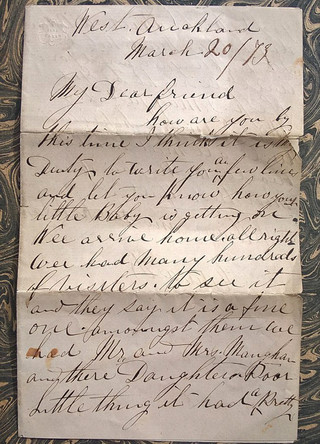 West Auckland
March 20/73
My Dear friend
how are you by
this time I think it is my
Duty to write you a few lines
and let you know how your
little Baby is getting on
Wee arrive home all right
wee had many hundreds
of visiters to see it
and they say it is a fine
one amongst them we
had Mr and Mrs Manghan
and there Daughter Poor
little thing it had a Broth